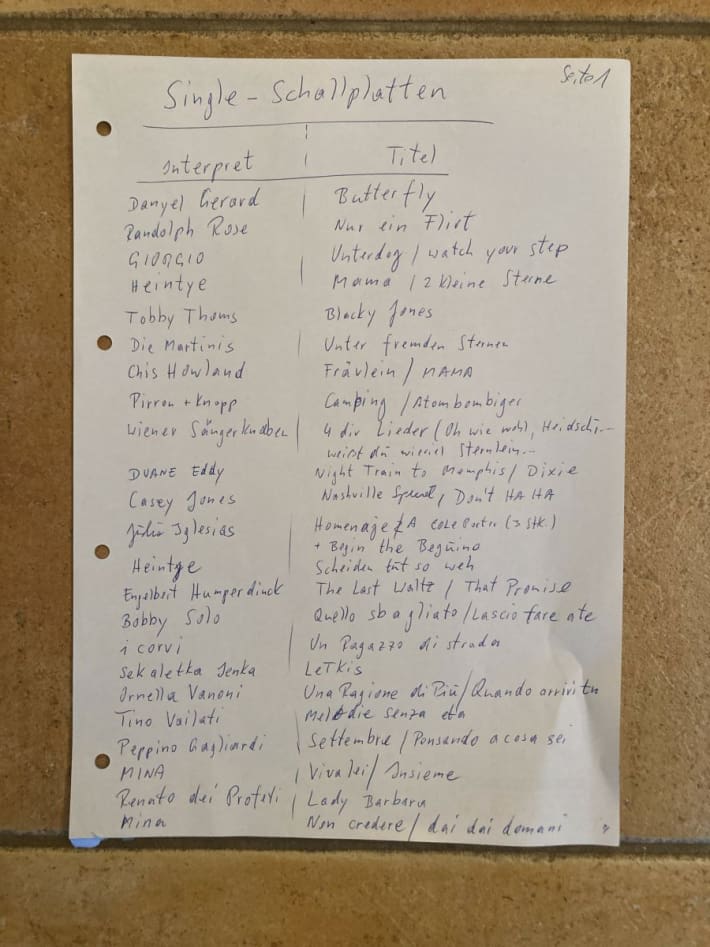 Seite 1
Single - Schallplatten
Interpret Titel
Danyel Gerard Butterfly
Randolph Rose Nur ein Flirt
GIORGIO Unterdog / watch your step
Heintye Mama / 2 kleine Sterne
Tobby Thoms Blacky Jones
Die Martinis Unter fremden Sternen
Chis Howland Fräulein / MAMA
Pirron + Knapp Camping / Atombombiger
Wiener Sängerknaben 4 div Lieder (Oh wie wohl, Heidschi...
weist du wieviel Sternlein...
DUANE Eddy Night Train to Memphis / Dixie
Casey Jones Nashville , Don't HA HA
Julio Iglesias Homenaje A COLE Porter (3 Stk.)
+ Begin the Beguino
Heintge Scheiden tut so weh
Engelbert Humperdinck The Last Waltz / That Promise
Bobby Solo Quello sbagliato / Lascio fare a te
i corvi Un Ragazzo di strada
Sekaletka Jenka LETKIS
Ornella Vanoni Una Ragione di Più / Quando arrivi tu
Tino Vailati Melodie senza eta
Peppino Gagliardi Settembre / Pensando a cosa sei
MINA Viva lei / Insieme
Renato dei Profeti Lady Barbara
Mina Non credere / dai dai domani